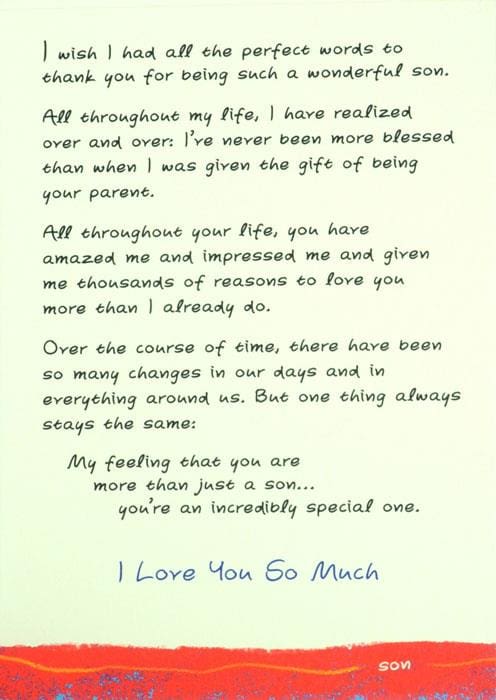 I wish I had all the perfect words to
thank you for being such a wonderful son.
All throughout my life, I have realized
over and over: I've never been more blessed
than when I was given the gift of being
your parent.
All throughout your life, you have
amazed me and impressed me and given
me thousands of reasons to love you
more than I already do.
Over the course of time, there have been
so many changes in our days and in
everything around us. But one thing always
stays the same:
My feeling that you are
more than just a son...
you're an incredibly special one.
I Love You So Much
son